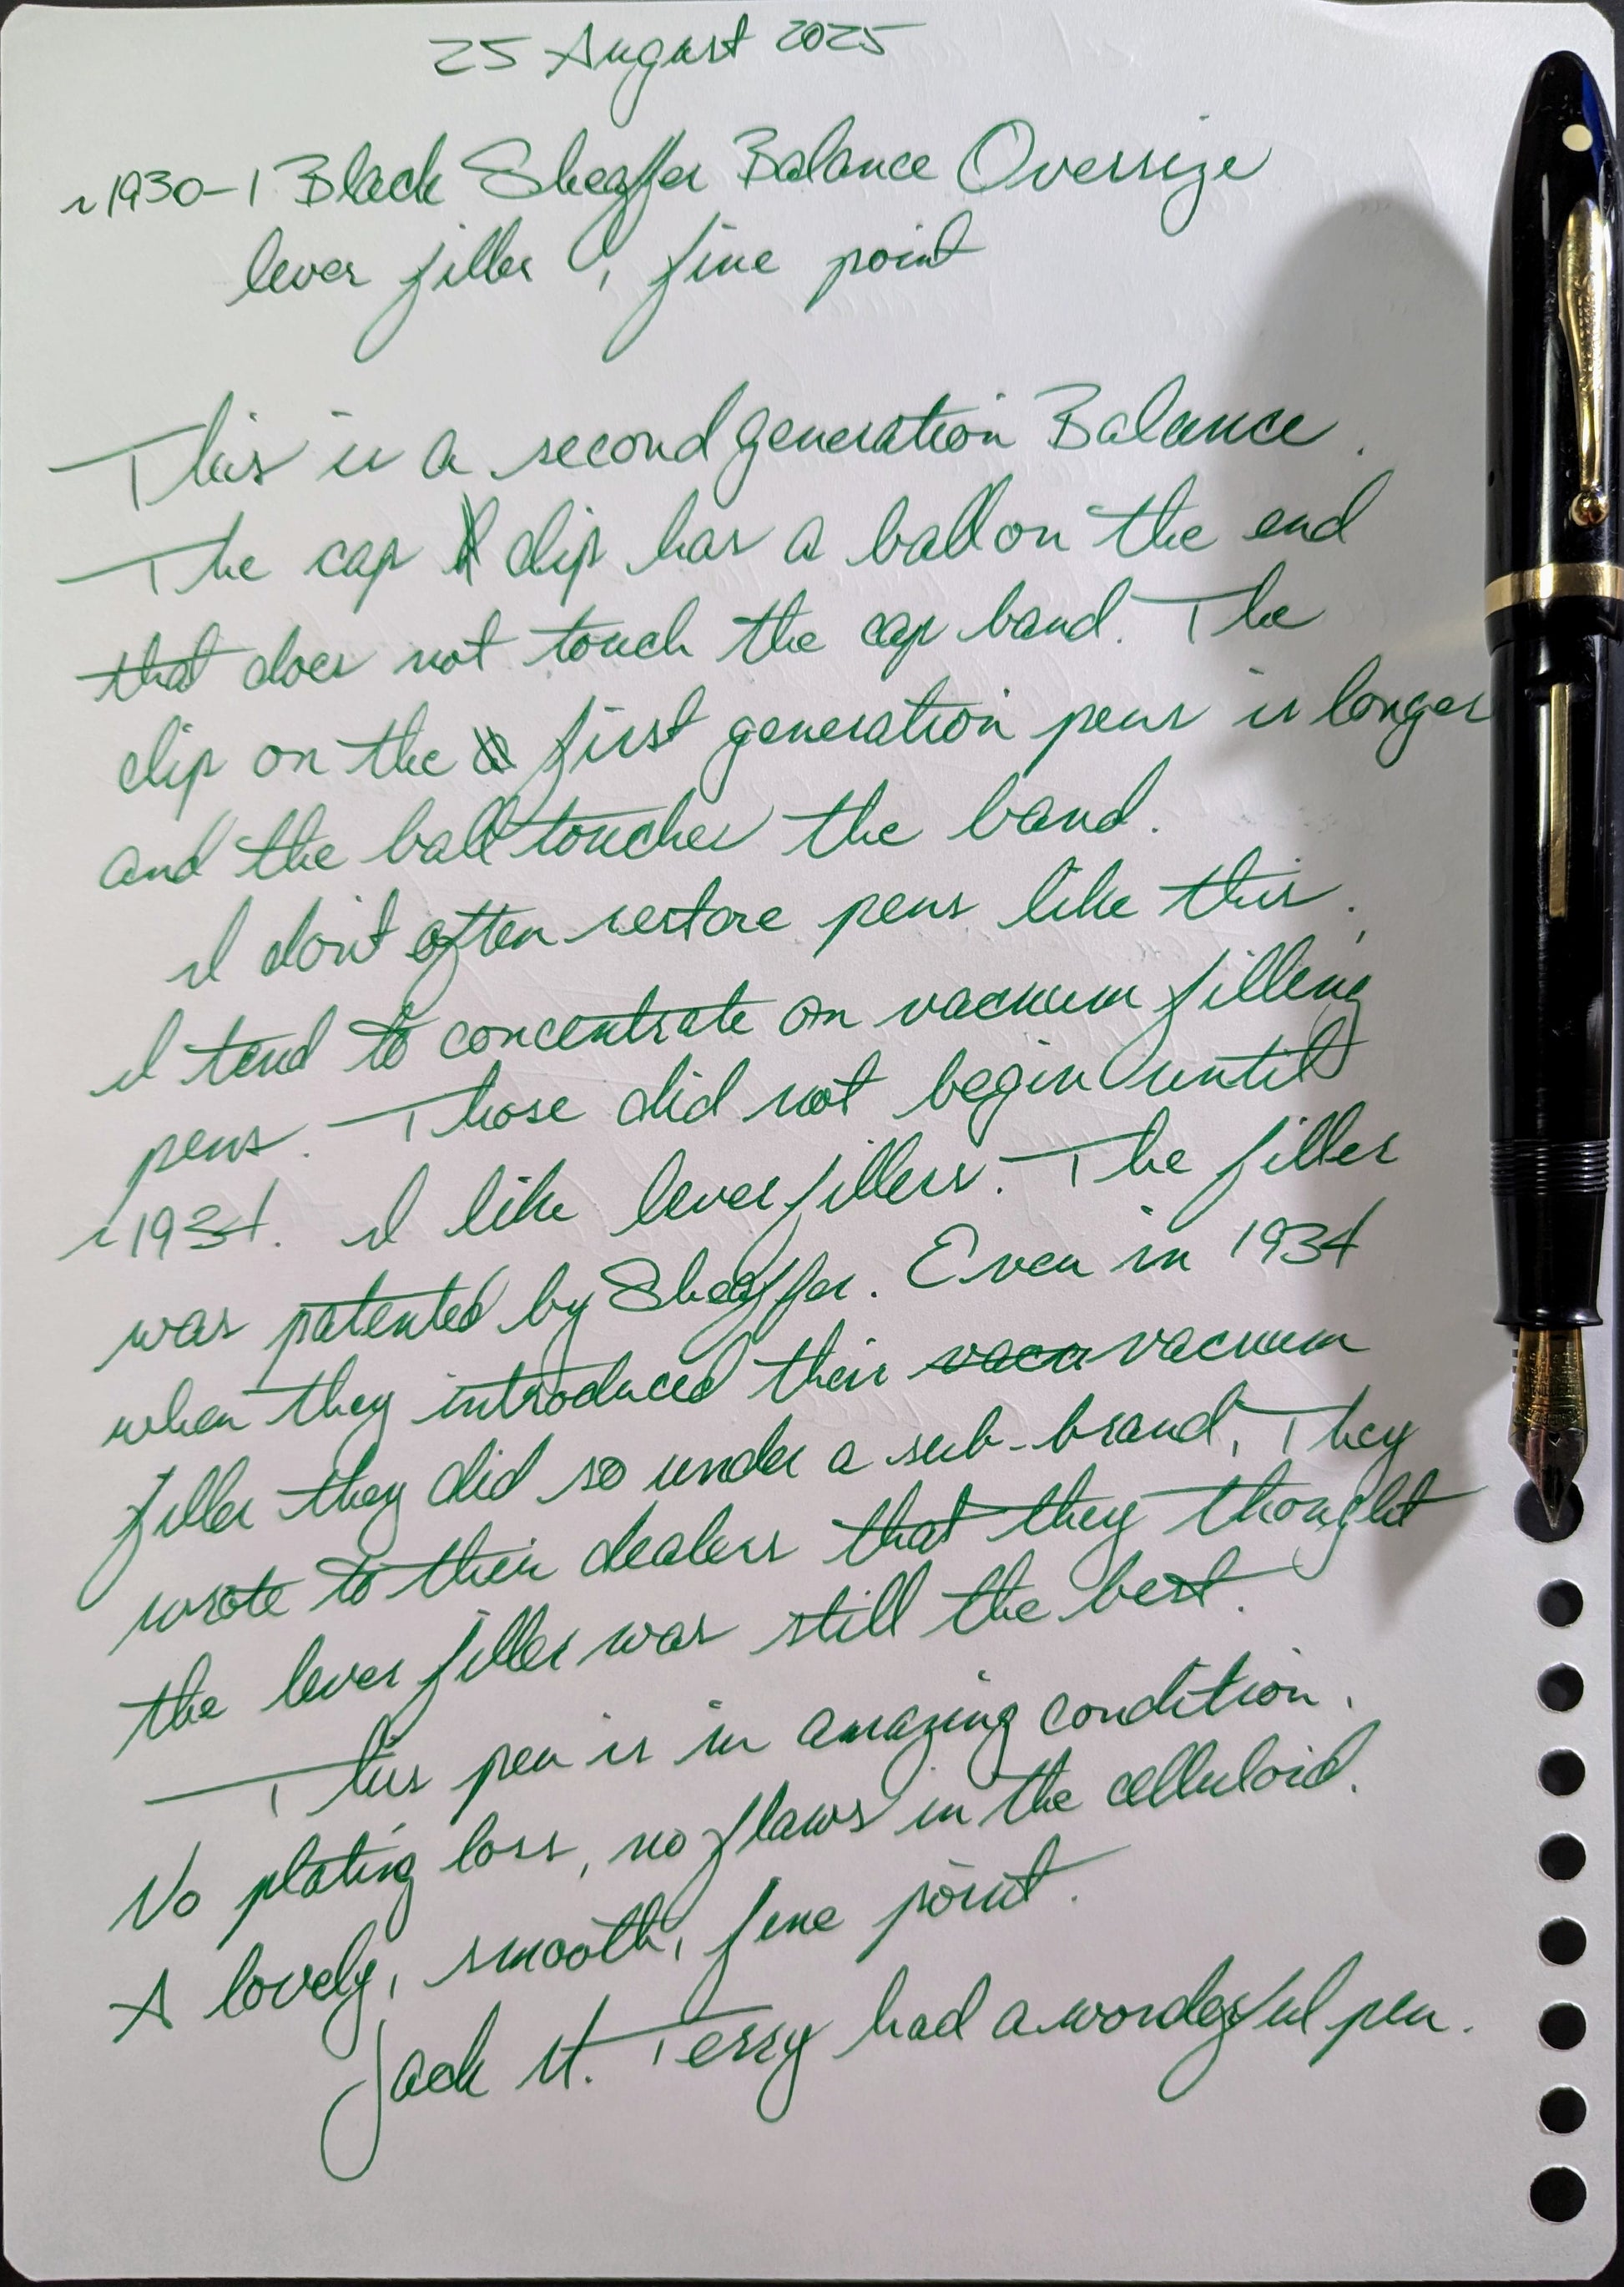 25 August 2025
~1930-1 Black Sheaffer Balance Oversize
lever filler, fine point
This is a second generation Balance.
The cap clip has a ball on the end
that does not touch the cap band. The
clip on the first generation pens is longer
and the ball touches the band.
I don't often restore pens like this.
I tend to concentrate on vacuum filling
pens. Those did not begin until
~1934. I like lever fillers. The filler
was patented by Sheaffer. Even in 1934
when they introduced their vacu vacuum
filler they did so under a sub-brand. They
wrote to their dealers that they thought
the lever filler was still the best.
This pen is in amazing condition.
No plating loss, no flaws in the celluloid.
A lovely, smooth, fine point.
Jack St. Terry had a wonderful pen.